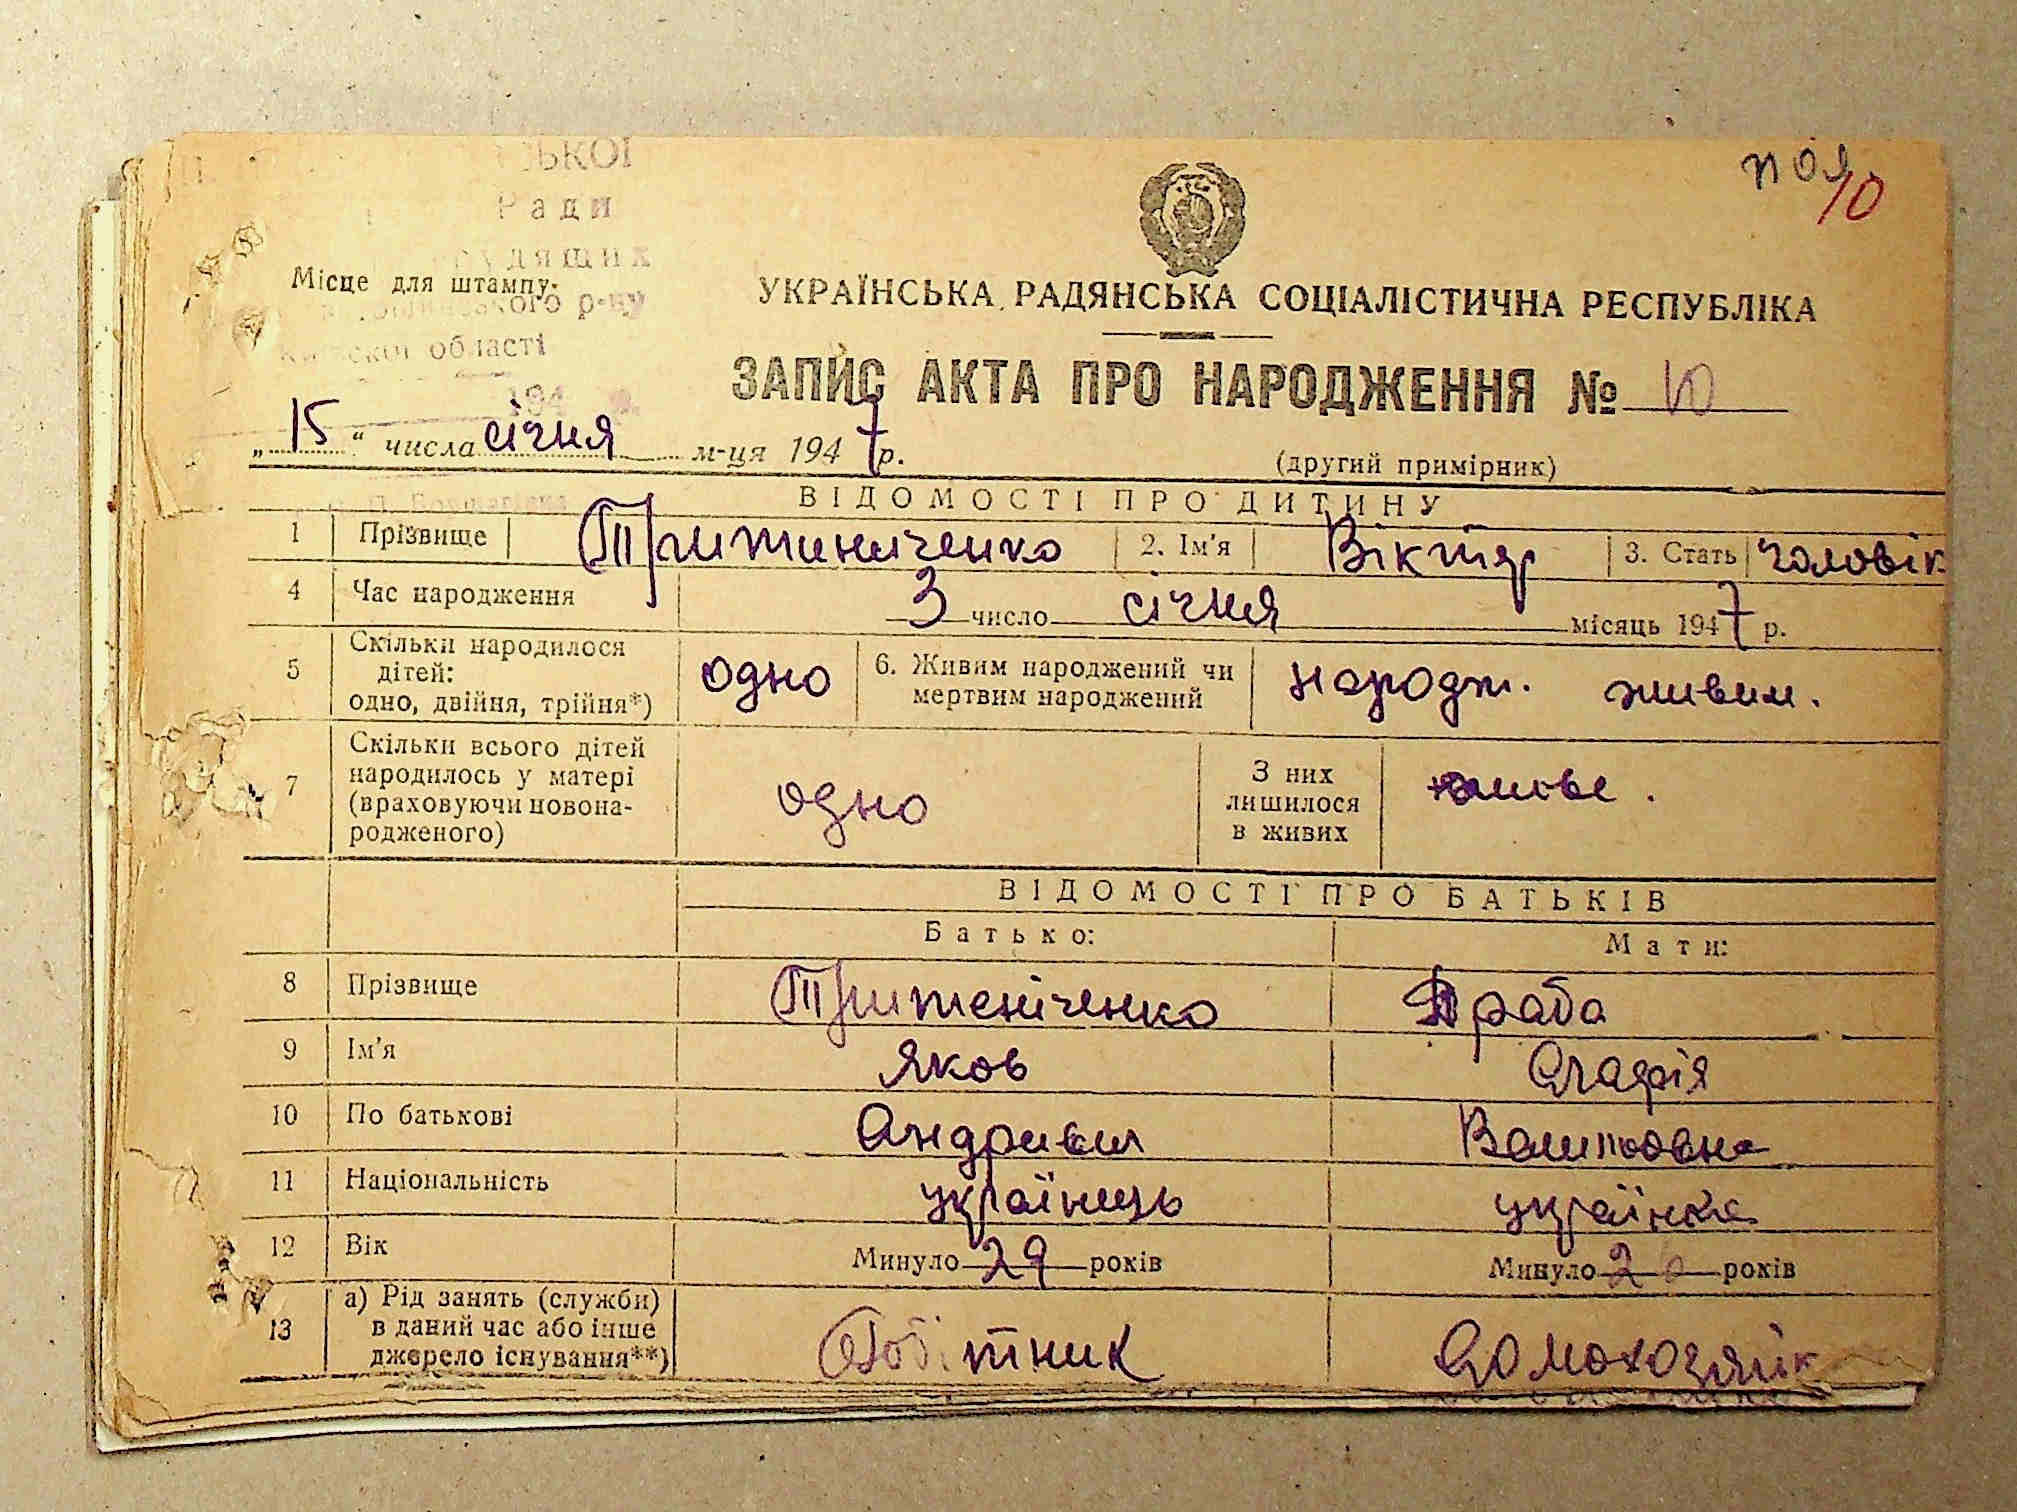 ької
Ради
рудящих
Місце для штампу.
ого р-ну
Київської області
194
УКРАЇНСЬКА РАДЯНСЬКА СОЦІАЛІСТИЧНА РЕСПУБЛІКА
ЗАПИС АКТА ПРО НАРОДЖЕННЯ № 10
10
„15“ числа січня м-ця 1947 р.
(другий примірник)
ВІДОМОСТІ ПРО ДИТИНУ
1 Прізвище 2. Ім'я Віктор 3. Стать чоловік
4 Час народження 3 число січня місяць 1947 р.
5 Скільки народилося дітей: одно, двійня, трійня*) одно 6. Живим народжений чи мертвим народжений народж. живим.
7 Скільки всього дітей народилось у матері (враховуючи новонародженого) одно З них лишилося в живих
ВІДОМОСТІ ПРО БАТЬКІВ
Батько: Мати:
8 Прізвище Драба
9 Ім'я Яков Агафія
10 По батькові
11 Національність українець українка
12 Вік Минуло 29 років Минуло років
13 а) Рід занять (служби) в даний час або інше джерело існування**) Робітник домохозяйк